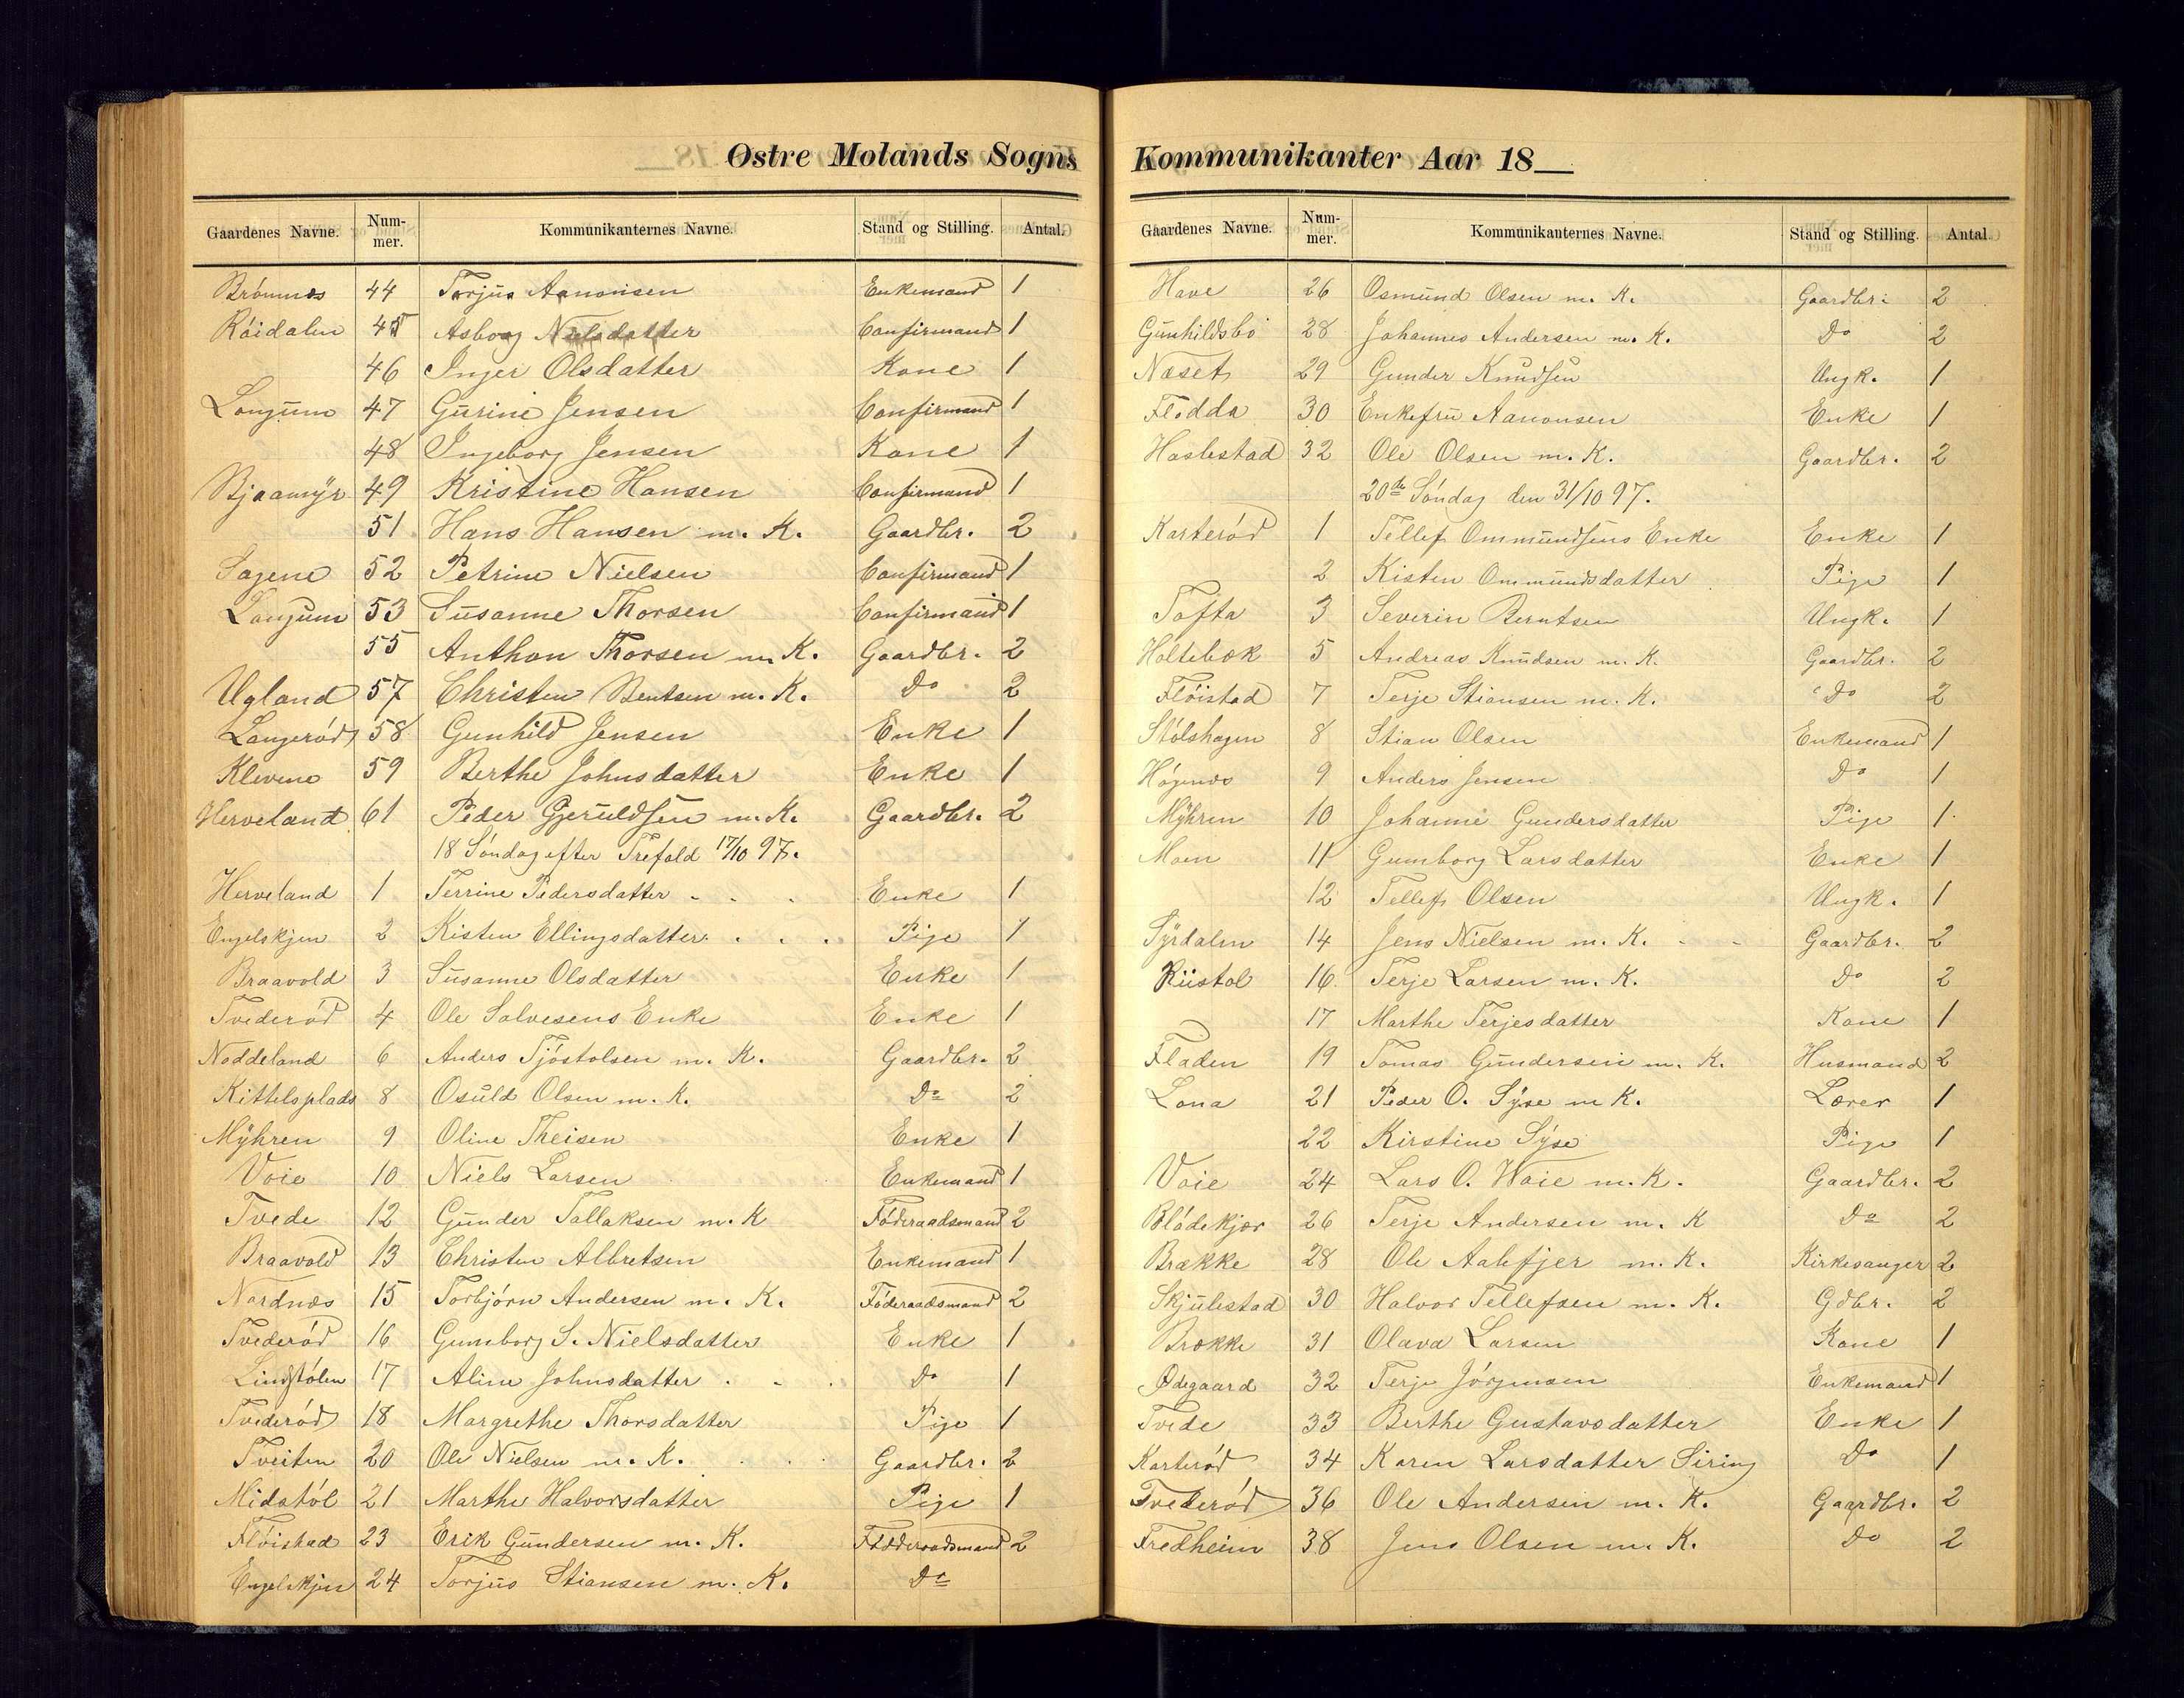 Østre Molands Sogns
Gaardenes Navne. Num-mer. Kommunikanternes Navne. Stand og Stilling. Antal.
Brømnes 44 Torjus Aanonsen Enkemand 1
Röidalen 45 Asborg Nielsdatter Confirmand 1
46 Inger Olsdatter Kone 1
Longum 47 Gurine Jensen Confirmand 1
48 Ingeborg Jensen Kone 1
Bjaamyr 49 Kristine Hansen Confirmand 1
51 Hans Hansen m. K. Gaardbr. 2
Sagene 52 Petrine Nielsen Confirmand 1
Longum 53 Susanne Thorsen Confirmand 1
55 Anthon Thorsen m K. Gaardbr. 2
Ugland 57 Christen Bentsen m. K. Do 2
Langerød 58 Gunhild Jensen Enke 1
Klevene 59 Berthe Johnsdatter Enke 1
Herveland 61 Peder Gjeruldsen m. K. Gaardbr. 2
18 Söndag efter Trefold 17/10 97.
Herveland 1 Terrine Pedersdatter Enke 1
Engelskjen 2 Kisten Ellingsdatter Pige 1
Braavold 3 Susanne Olsdatter Enke 1
Tvederød 4 Ole Salvesens Enke Enke 1
Noddeland 6 Anders Tjöstolsen m. K. Gaardbr. 2
Kittelsplads 8 Osuld Olsen m. K. Do 2
Myhren 9 Oline Theisen Enke 1
Voie 10 Niels Larsen Enkemand 1
Tvede 12 Gunder Tallaksen m. K Föderaadsmand 2
Braavold 13 Christen Albretsen Enkemand 1
Nardnes 15 Torbjörn Andersen m. K. Föderaadsmand 2
Tvederød 16 Gumborg S. Nielsdatter Enke 1
Lindstölen 17 Aline Johnsdatter Do 1
Tvederød 18 Margrethe Thorsdatter Pige 1
Tveiten 20 Ole Nielsen m. K. Gaardbr. 2
Midstöl 21 Marthe Halvorsdatter Pige 1
Flöistad 23 Erik Gundersen m. K. Föderaadsmand 2
Engelskjen 24 Torjus Stiansen m. K. Do
Kommunikanter Aar 18
Gaardenes Navne. Num-mer. Kommunikanternes Navne. Stand og Stilling. Antal.
Have 26 Osmund Olsen m. K. Gaardbr. 2
Gunhildsbo 28 Johannes Andersen m. K. Do 2
Næset 29 Gunder Knudsen Ungk. 1
Flodda 30 Enkefru Aanonsen Enke 1
Haslestad 32 Ole Olsen m. K. Gaardbr. 2
20de Söndag den 31/10 97.
Karterød 1 Tellef Ommundsens Enke Enke 1
2 Kisten Ommundsdatter Pige 1
Tofta 3 Severin Berntsen Ungk. 1
Holtebæk 5 Andreas Knudsen m. K. Gaardbr. 2
Flöistad 7 Terje Stiansen m. K. Do 2
Stölshagen 8 Stian Olsen Enkemand 1
Högenes 9 Anders Jensen Do 1
Myhren 10 Johanne Gundersdatter Pige 1
Moen 11 Gumborg Larsdatter Enke 1
12 Tellef Olsen Ungk. 1
Syrdalen 14 Jens Nielsen m. K. Gaardbr. 2
Riistol 16 Terje Larsen m. K. Do 2
17 Marthe Terjesdatter Kone 1
Fladen 19 Tomas Gundersen m. K. Husmand 2
Lona 21 Peder O. Syse m K. Lærer 1
22 Kirstine Syse Pige 1
Voie 24 Lars O. Woie m. K. Gaardbr. 2
Blödekjær 26 Terje Andersen m. K Do 2
Brække 28 Ole Aalefjer m. K. Kirkesanger 2
Skjulestad 30 Halvor Tellefsen m. K. Gdbr. 2
Brække 31 Olava Larsen Kone 1
Ødegaard 32 Terje Jörgensen Enkemand 1
Tvede 33 Berthe Gustavsdatter Enke 1
Karterød 34 Karen Larsdatter Siring Do 1
Tvederød 36 Ole Andersen m. K. Gaardbr. 2
Fredheim 38 Jens Olsen m. K. Do 2